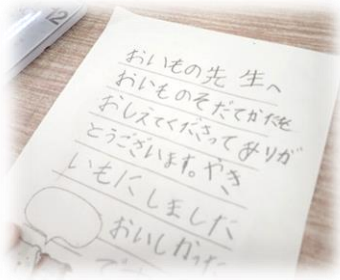 おいもの先生へ
おいものそだてかたを
おしえてくださってありが
とうございます。やき
いもにしました
おいしかった
で
12